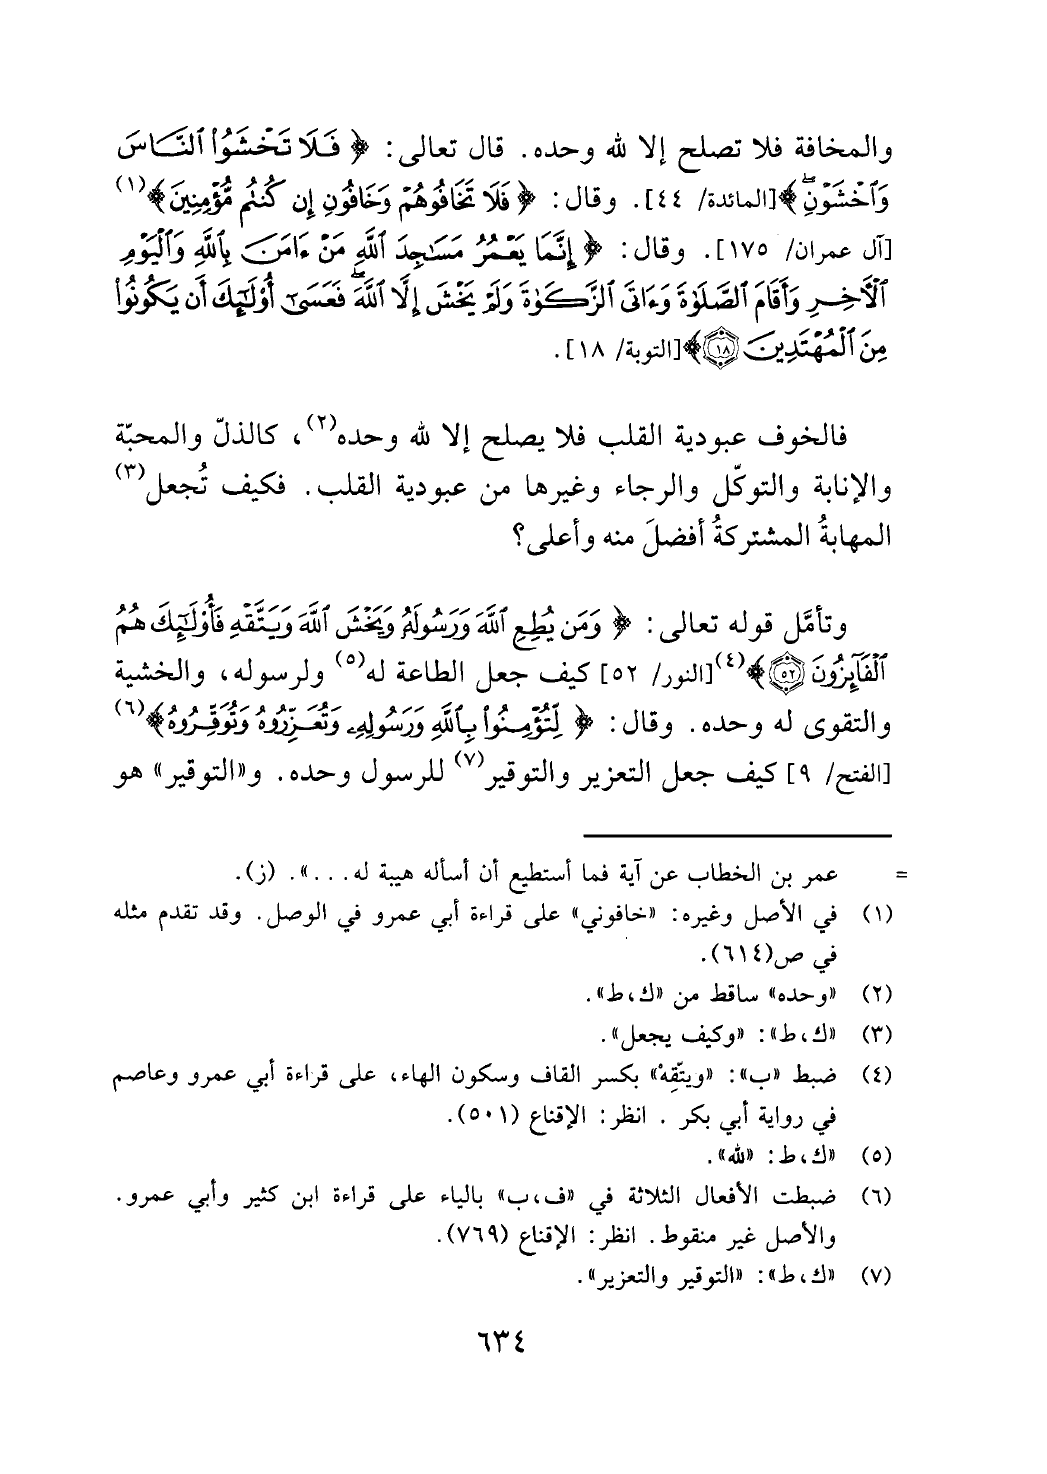 والمخافة فلا تصلح إلا لله وحده. قال تعالى: ﴿ فَلَا تَخْشَوُا۟ ٱلنَّاسَ
وَٱخْشَوْنِۖ ﴾ [المائدة/ ٤٤]. وقال: ﴿ فَلَا تَخَافُوهُمْ وَخَافُونِ إِن كُنتُم مُّؤْمِنِينَ ﴾(١)
[آل عمران/ ١٧٥]. وقال: ﴿ إِنَّمَا يَعْمُرُ مَسَٰجِدَ ٱللَّهِ مَنْ ءَامَنَ بِٱللَّهِ وَٱلْيَوْمِ
ٱلْأَخِرِ وَأَقَامَ ٱلصَّلَوٰةَ وَءَاتَى ٱلزَّكَوٰةَ وَلَمْ يَخْشَ إِلَّا ٱللَّهَۖ فَعَسَىٰٓ أُو۟لَٰٓئِكَ أَن يَكُونُوا۟
مِنَ ٱلْمُهْتَدِينَ ١٨ ﴾ [التوبة/ ١٨].
فالخوف عبودية القلب فلا يصلح إلا لله وحده(٢)، كالذلّ والمحبّة
والإنابة والتوكّل والرجاء وغيرها من عبودية القلب. فكيف تُجعل(٣)
المهابةُ المشتركةُ أفضلَ منه وأعلى؟
وتأمَّل قوله تعالى: ﴿ وَمَن يُطِعِ ٱللَّهَ وَرَسُولَهُۥ وَيَخْشَ ٱللَّهَ وَيَتَّقْهِ فَأُو۟لَٰٓئِكَ هُمُ
ٱلْفَآئِزُونَ ٥٢ ﴾(٤) [النور/ ٥٢] كيف جعل الطاعة له(٥) ولرسوله، والخشية
والتقوى له وحده. وقال: ﴿ لِّتُؤْمِنُوا۟ بِٱللَّهِ وَرَسُولِهِۦ وَتُعَزِّرُوهُ وَتُوَقِّرُوهُ ﴾(٦)
[الفتح/ ٩] كيف جعل التعزير والتوقير(٧) للرسول وحده. و«التوقير» هو
= عمر بن الخطاب عن آية فما أستطيع أن أسأله هيبة له...». (ز).
(١) في الأصل وغيره: «خافوني» على قراءة أبي عمرو في الوصل. وقد تقدم مثله
في ص(٦١٤).
(٢) «وحده» ساقط من «ك، ط».
(٣) «ك، ط»: «وكيف يجعل».
(٤) ضبط «ب»: «ويتّقِهْ» بكسر القاف وسكون الهاء، على قراءة أبي عمرو وعاصم
في رواية أبي بكر . انظر: الإقناع (٥٠١).
(٥) «ك، ط: «لله».
(٦) ضبطت الأفعال الثلاثة في «ف، ب» بالياء على قراءة ابن كثير وأبي عمرو.
والأصل غير منقوط. انظر: الإقناع (٧٦٩).
(٧) «ك، ط»: «التوقير والتعزير».
٦٣٤